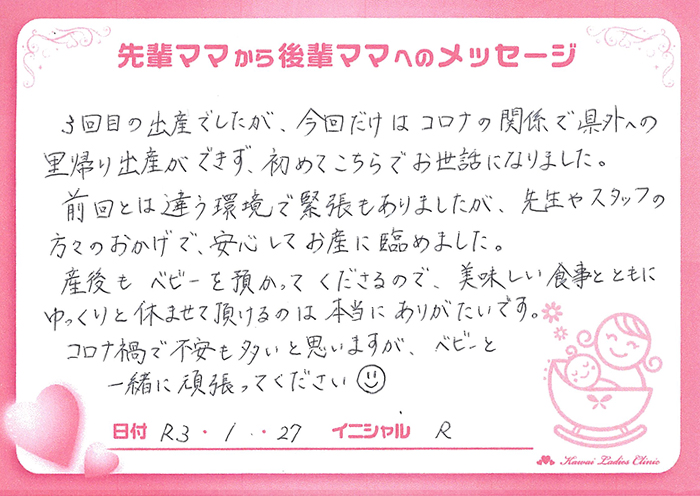 先輩ママから後輩ママへのメッセージ
3回目の出産でしたが、今回だけはコロナの関係で県外への
里帰り出産ができず、初めてこちらでお世話になりました。
前回とは違う環境で緊張もありましたが、先生やスタッフの
方々のおかげで、安心してお産に臨めました。
産後も ベビーを預かってくださるので、美味しい食事とともに
ゆっくりと休ませて頂けるのは本当にありがたいです。
コロナ禍で不安も多いと思いますが、ベビーと
一緒に頑張ってください
日付 R3・1・・27 イニシャル R
Kawai Ladies Clinic